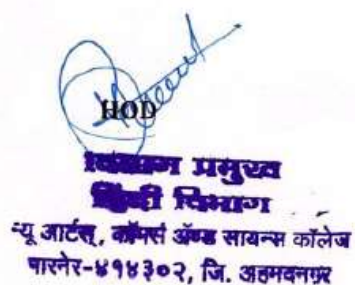 HOD
विभाग प्रमुख
हिंदी विभाग
न्यू आर्टस्, कॉमर्स अॅण्ड सायन्स कॉलेज
पारनेर-४१४३०२, जि. अहमदनगर